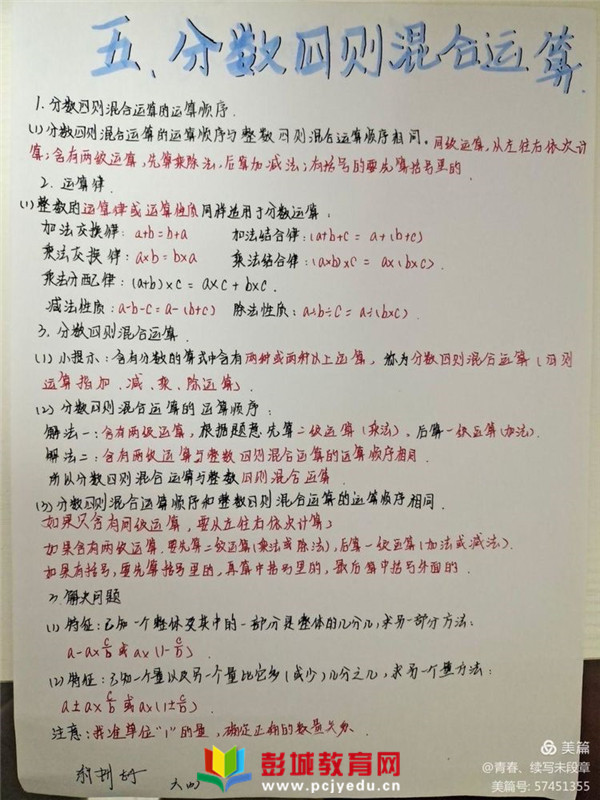 五、分数四则混合运算
1. 分数四则混合运算的运算顺序.
(1) 分数四则混合运算的运算顺序与整数四则混合运算顺序相同。同级运算,从左往右依次计
算;含有两级运算,先算乘除法,后算加减法;有括号的要先算括号里的.
2. 运算律.
(1) 整数的运算律或运算性质同样适用于分数运算:
加法交换律: a+b=b+a 加法结合律: (a+b)+c = a+(b+c)
乘法交换律: a×b=b×a 乘法结合律: (a×b)×c = a×(b×c).
乘法分配律: (a+b)×c = a×c + b×c.
减法性质: a-b-c=a-(b+c) 除法性质: a÷b÷c = a÷(b×c)
3. 分数四则混合运算.
(1) 小提示: 含有分数的算式中含有两种或两种以上运算, 称为分数四则混合运算 (四则
运算指加、减、乘、除运算)
(2) 分数四则混合运算的运算顺序:
解法一: 含有两级运算, 根据题意先算二级运算 (乘法), 后算一级运算 (加法).
解法二: 含有两级运算与整数四则混合运算的运算顺序相同.
所以分数四则混合运算与整数四则混合运算.
(3) 分数四则混合运算顺序和整数四则混合运算的运算顺序相同.
如果只含有同级运算, 要从左往右依次计算;
如果含有两级运算,要先算二级运算(乘法或除法), 后算一级运算(加法或减法).
如果有括号, 要先算括号里的, 再算中括号里的, 最后算中括号外面的.
3. 解决问题
(1) 特征: 已知一个整体及其中的一部分是整体的几分几, 求另一部分方法:
a-a×c/b 或 a×(1-c/b)
(2) 特征: 已知一个量以及另一个量比它多(减少)几分之几, 求另一个量方法:
a±a×c/b 或 a×(1±c/b).
注意: 找准单位"1"的量, 确定正确的数量关系.
六(4)
彭城教育网
www.pcjyedu.cn
美篇
@青春、续写末段章
美篇号: 57451355